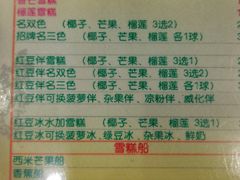 榴莲雪糕
名双色 （椰子、芒果、榴莲 3选2）
招牌名三色 （椰子、芒果、榴莲 各1球）
红豆伴雪糕 （椰子、芒果、榴莲 3选1）
红豆伴名双色 （椰子、芒果、榴莲 3选2）
红豆伴名三色 （椰子、芒果、榴莲 各1球）
红豆伴可换菠萝伴、杂果伴、凉粉伴、威化伴
红豆冰水加雪糕 （椰子、芒果、榴莲 3选1）
红豆冰可换菠萝冰、绿豆冰、杂果冰、鲜奶
雪糕船
西米芒果船
香蕉船